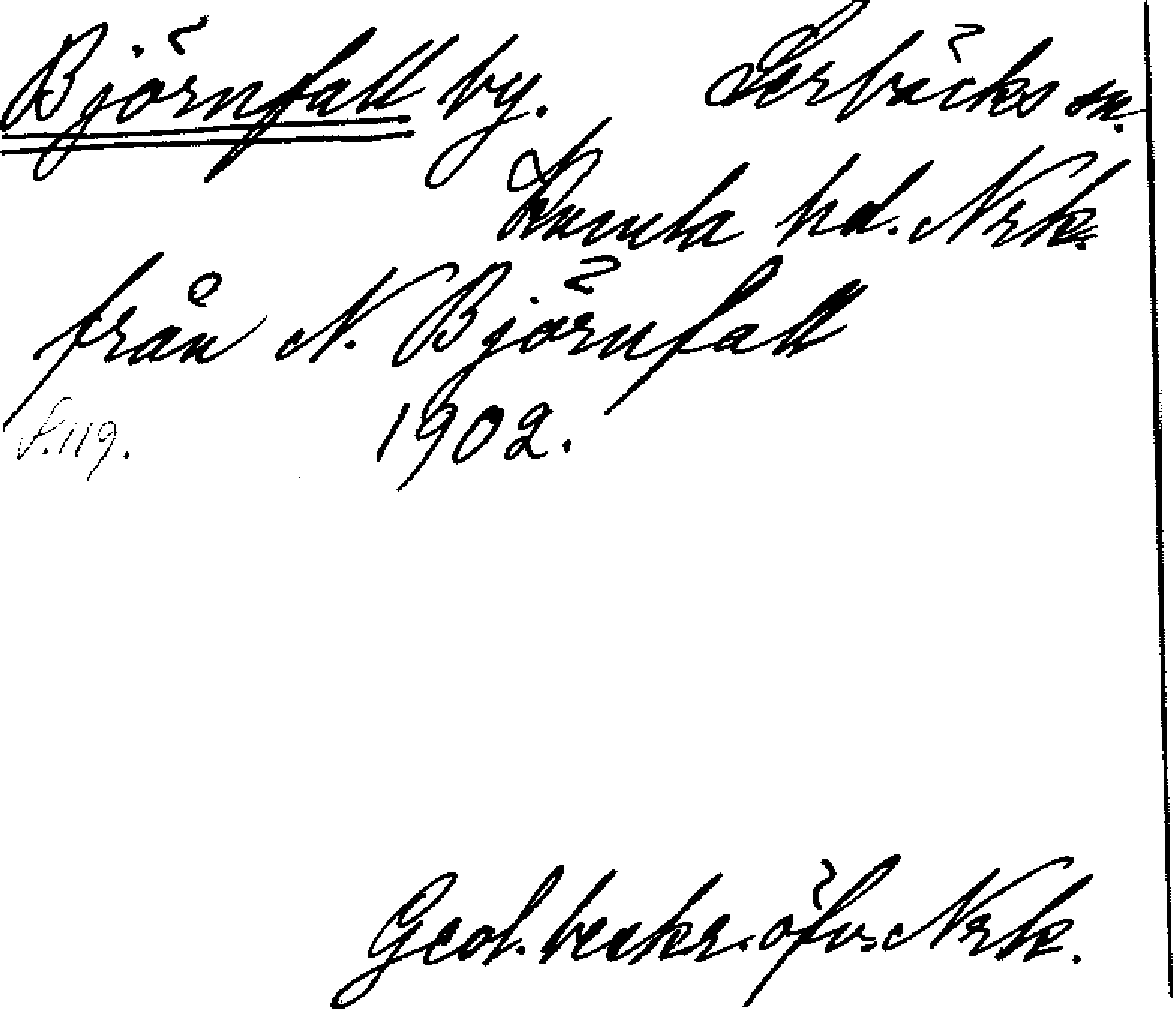 Björnfall by. Lerbäcks sn.
Kumla hd. Nrk.
från N. Björnfall
S. 119. 1902.
Geol. beskr. öfv. Nrk.